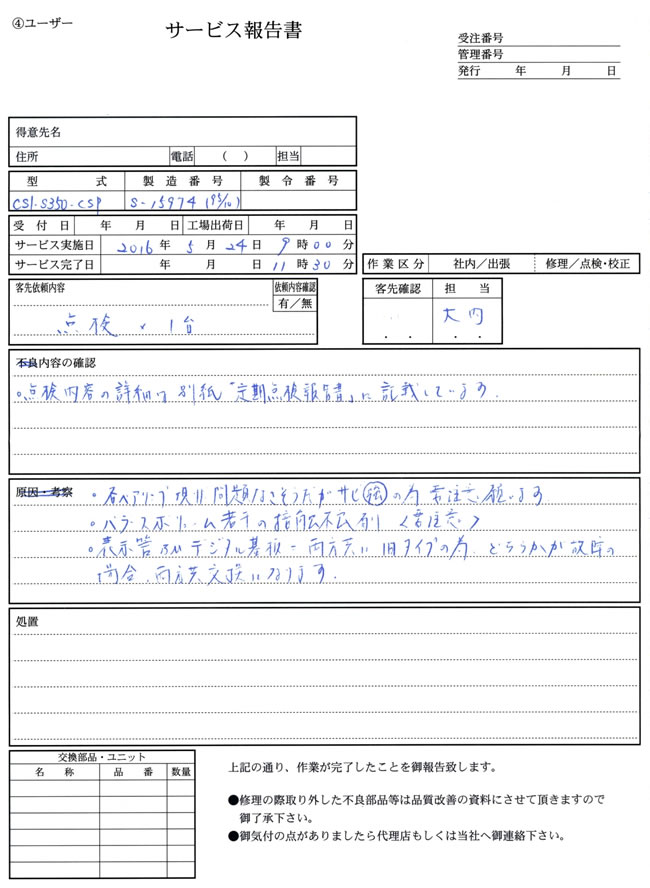 ④ユーザー
サービス報告書
受注番号
管理番号
発行 年 月 日
得意先名
住所 電話 ( ) 担当
型 式 製造番号 製令番号
CSI-S350-CSP S-15974 (95/10)
受付日 年 月 日 工場出荷日 年 月 日
サービス実施日 2016年 5月 24日 9時 00分
サービス完了日 年 月 日 11時 30分
作業区分 社内/出張 修理/点検・校正
客先依頼内容 依頼内容確認
有/無
点検 1台
客先確認 担当
大内
・ ・ ・ ・
不良内容の確認
○点検内容の詳細は別紙「定期点検報告書」に記載しています.
原因・考察
・各ベアリング 現状問題なさそうだがサビ強の為 要注意願います
・バランスボリューム若干の接触不良有り <要注意>
・表示管及びデジタル基板- 両方共に旧タイプの為、どちらかが故障の
場合、両方共交換になります.
処置
交換部品・ユニット
名 称 品 番 数量
上記の通り、作業が完了したことを御報告致します。
●修理の際取り外した不良部品等は品質改善の資料にさせて頂きますので
御了承下さい。
●御気付の点がありましたら代理店もしくは当社へ御連絡下さい。